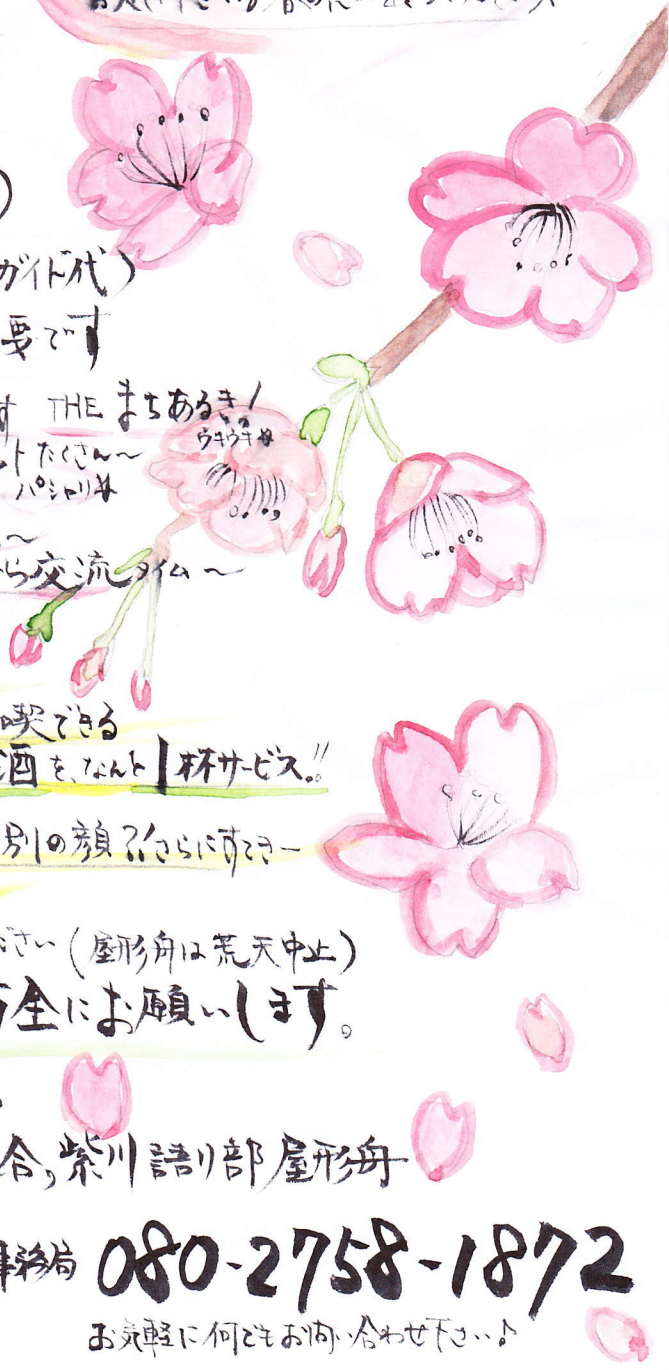 )
ガイド代)
要です
す THE まちあるき!
ウキウキ
トたくさん〜
パシャリ
〜
ら交流タイム〜
喫できる
酒を、なんと1杯サービス!!
別の顔?!さらにすてき〜
ださい(屋形舟は荒天中止)
万全にお願いします。
合、紫川語り部屋形舟
事務局 080-2758-1872
お気軽に何でもお問い合わせ下さい♪